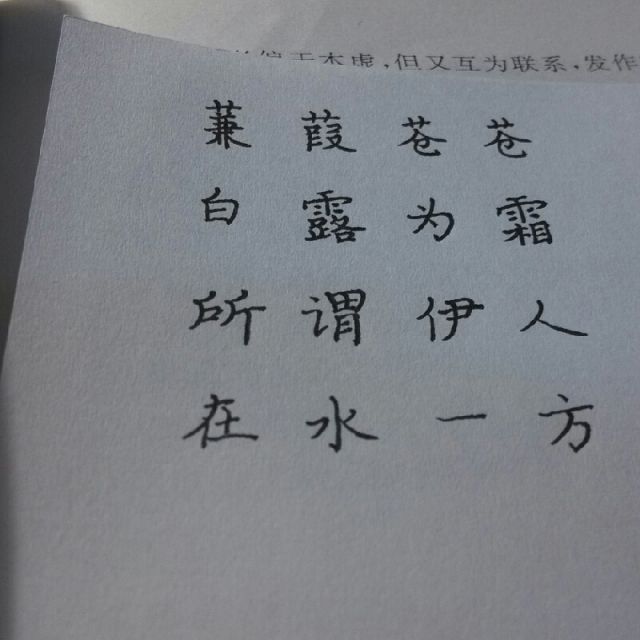 于本虚，但又互为联系，发作
蒹葭苍苍
白露为霜
所谓伊人
在水一方